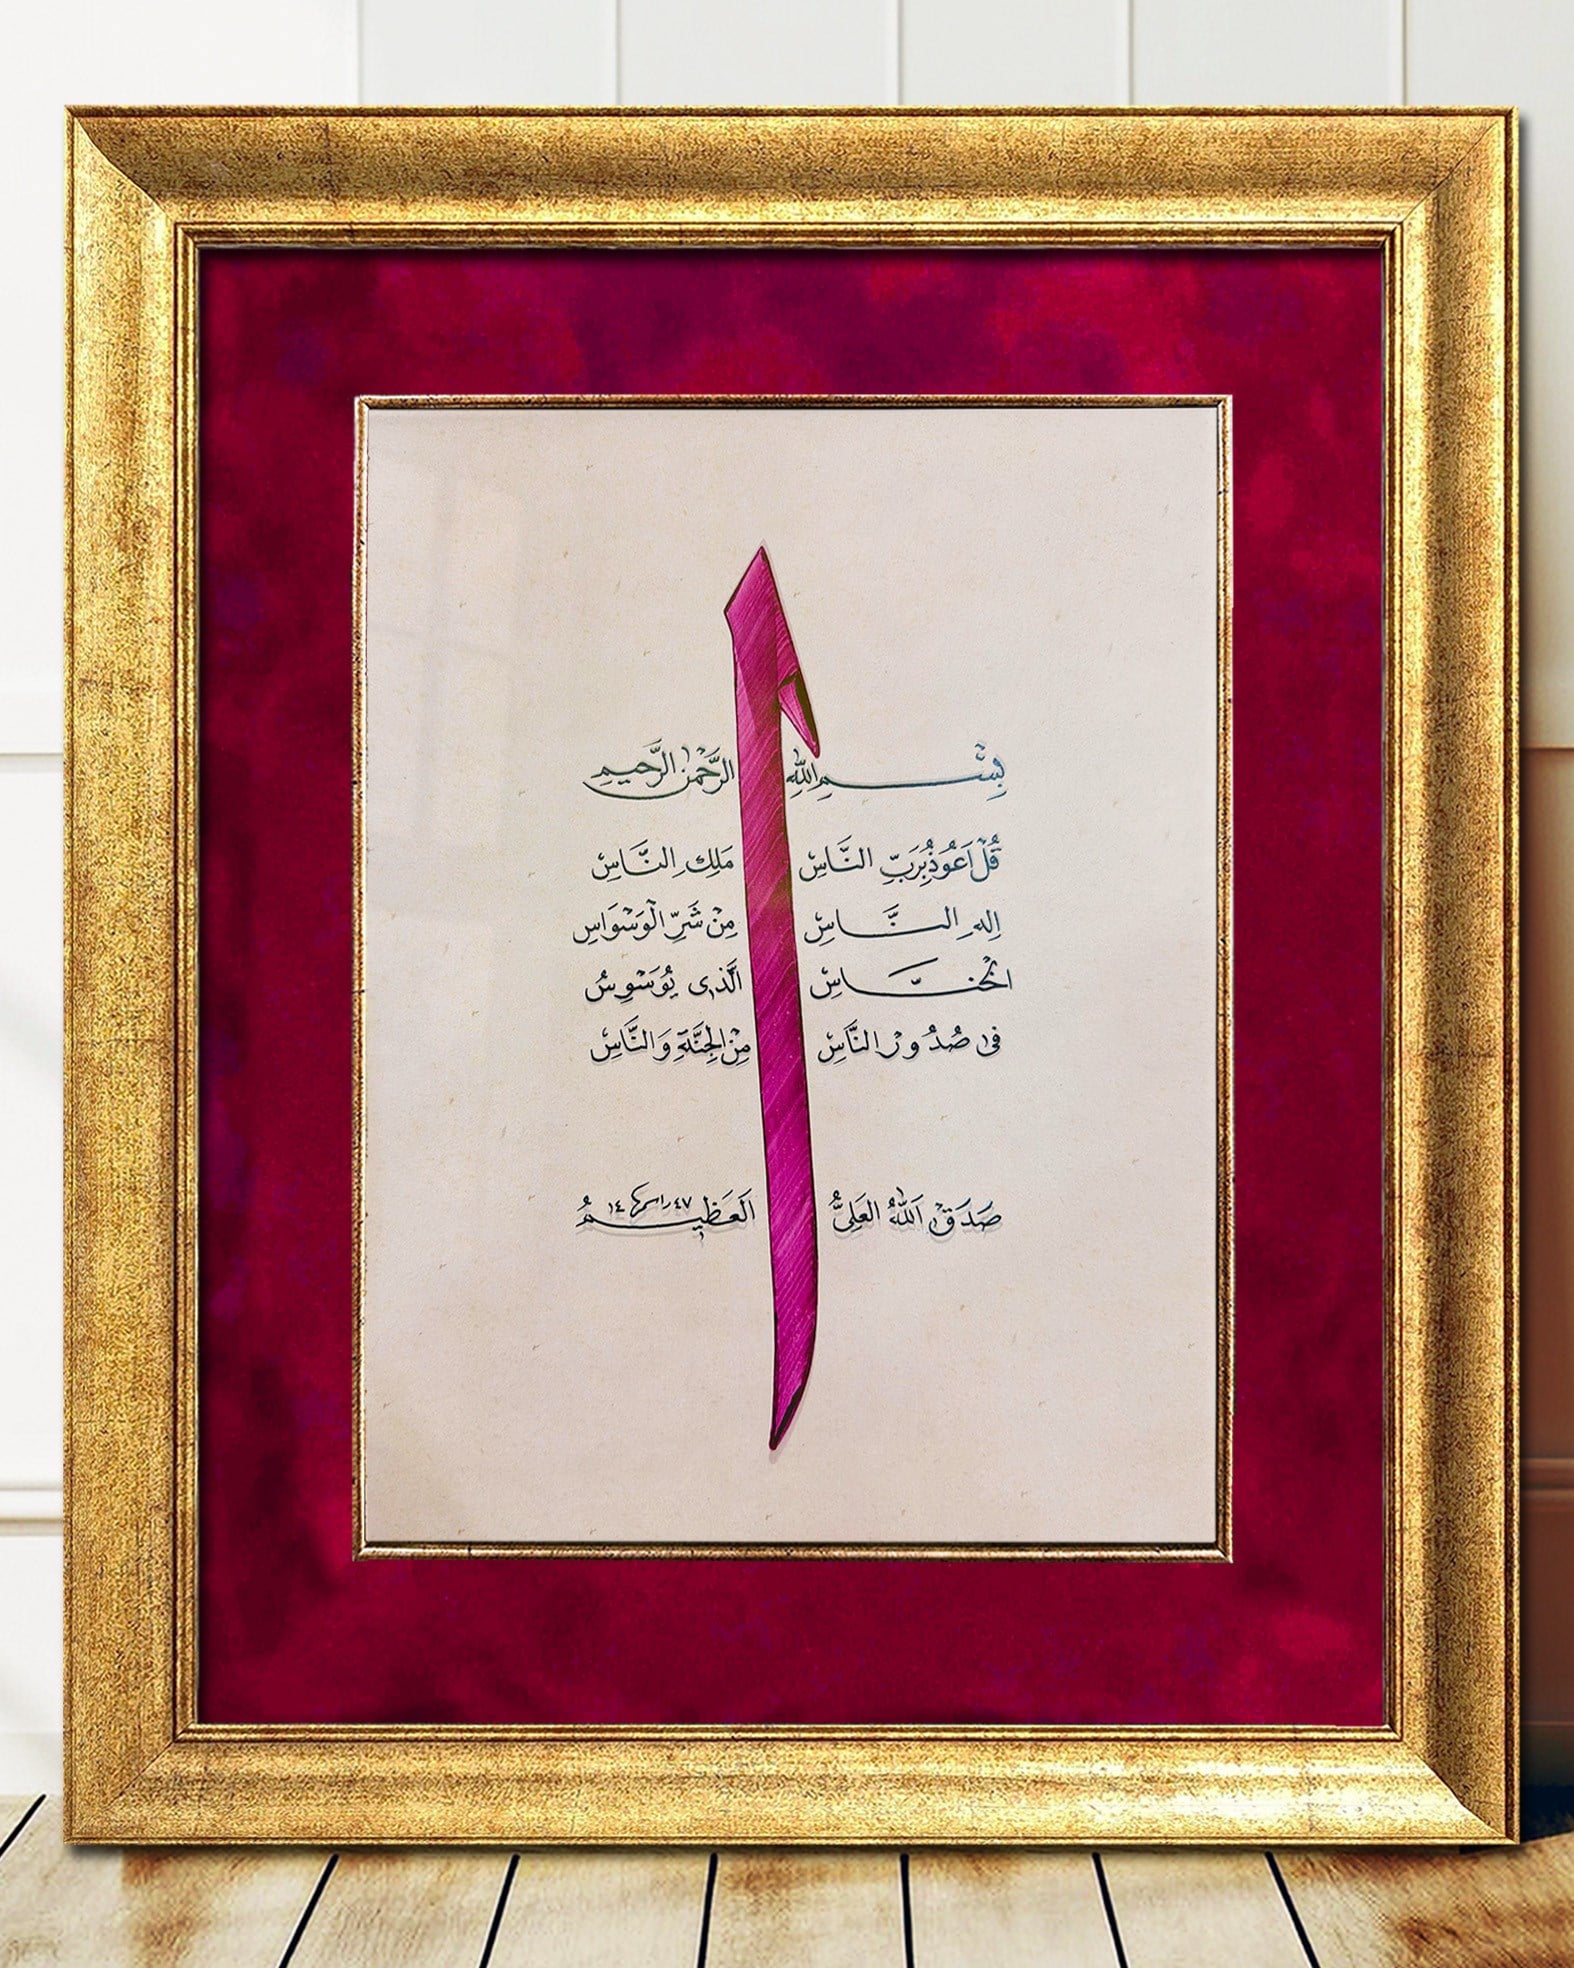 بِسْمِ اللهِ الرَّحْمٰنِ الرَّحِيمِ
قُلْ اَعُوذُ بِرَبِّ النَّاسِ مَلِكِ النَّاسِ
اِلٰهِ النَّاسِ مِنْ شَرِّ الْوَسْوَاسِ
الْخَنَّاسِ الَّذٖى يُوَسْوِسُ
فٖى صُدُورِ النَّاسِ مِنَ الْجِنَّةِ وَالنَّاسِ
صَدَقَ اللهُ الْعَلِىُّ الْعَظِيمُ